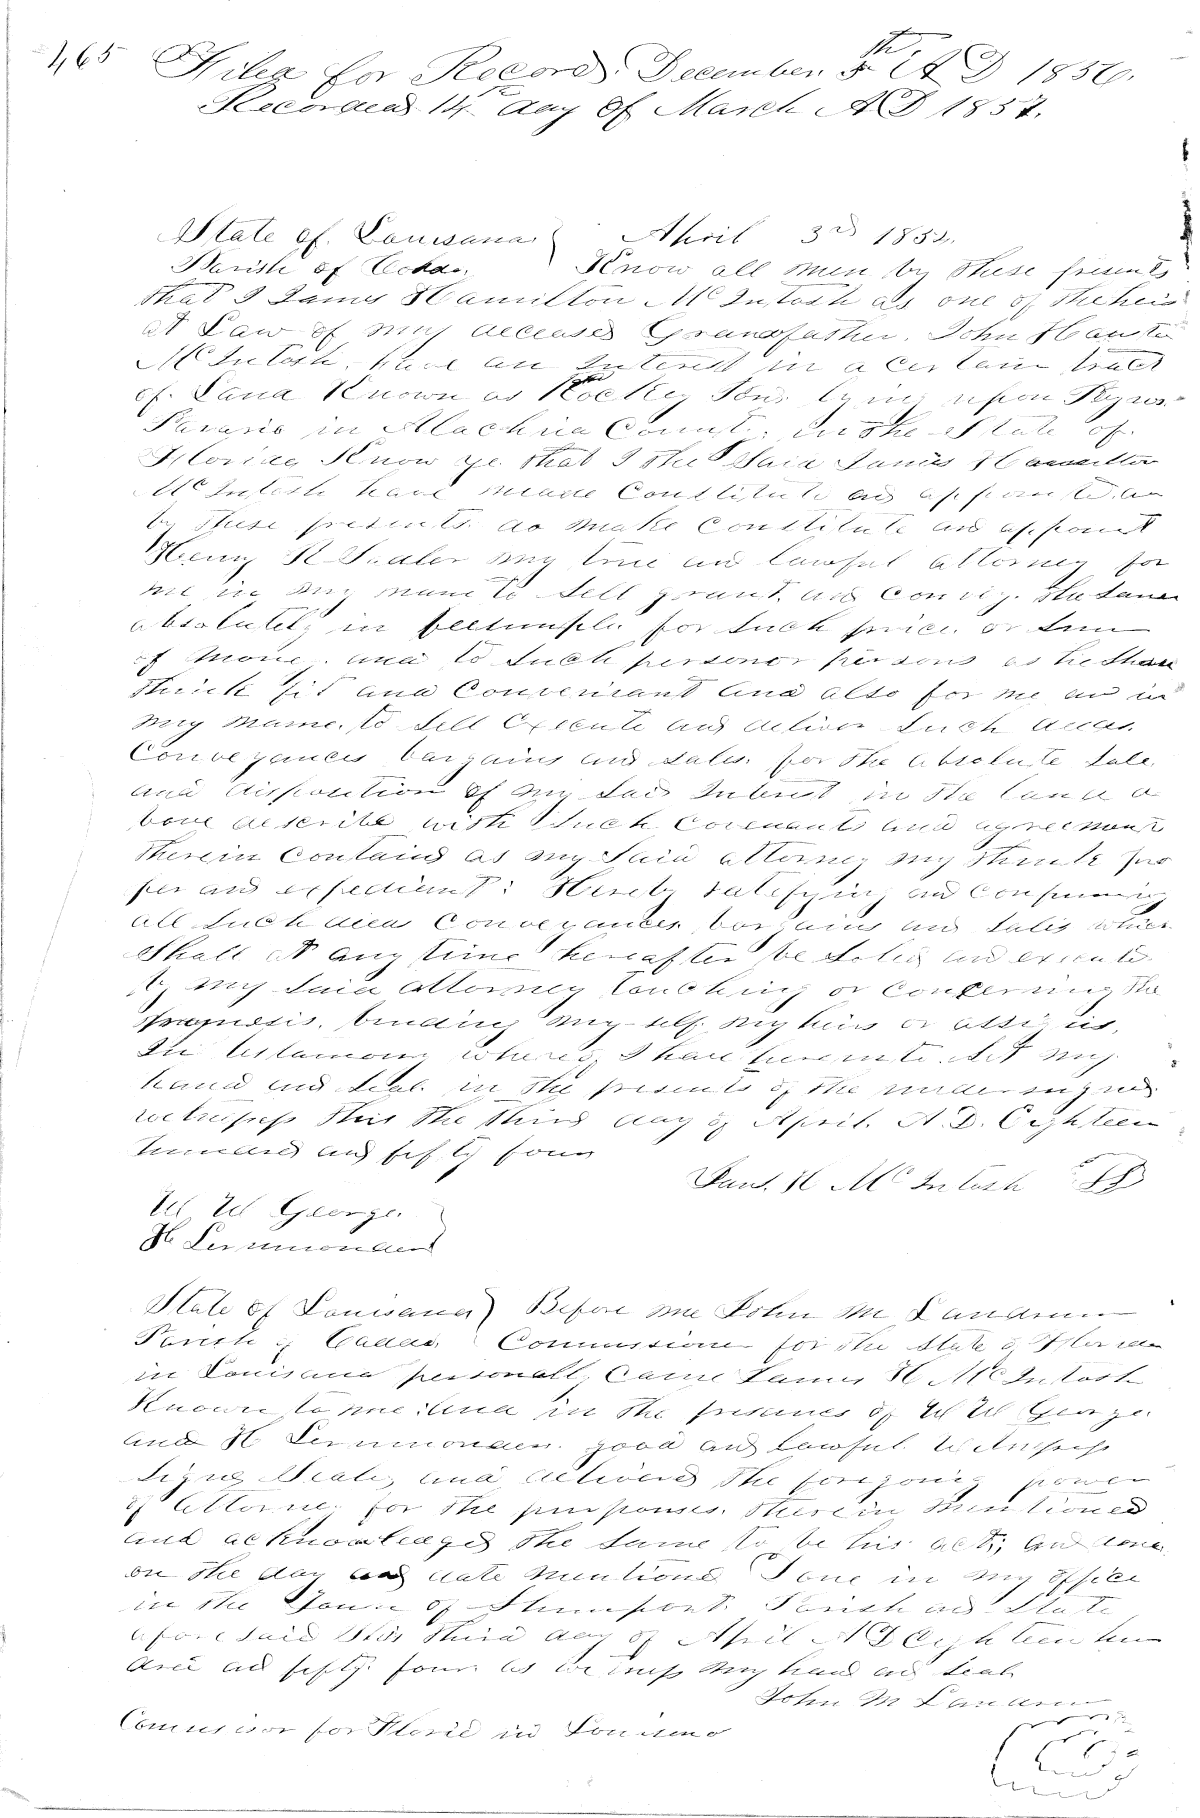 465
Filed for Record December 5th A D 1856.
Recorded 14th day of March A D 1857.
State of Louisiana ) April 3rd 185
Parish of ) Know all men by these presents
that I James Hamilton McIntosh as one of the heirs
at Law of my deceased Grandfather, John Houston
McIntosh, have an Interest in a certain tract
of Land Known as lying upon
in Alachua County, in the State of
Florida Know ye that I the Said James Hamilton
McIntosh have made Constitute and appointed an
by these presents do make constitute and appoint
Henry R Sadler my true and lawful attorney for
me in my name to Sell grant and Convey the Same
absolutely in feesimple for Such price or Sum
of Money and to Such personor persons as he Shall
think fit and Conveniant and also for me and in
my name, to Sell Execute and deliver Such deeds
Conveyances bargains and Sales for the absolute Sale
and disposition of my Said Interest in the land a
bove describe with Such Covenants and agreement
therein Contained as my Said attorney my think pro
per and expediant: Hereby ratifying and confirming
all Such deeds Conveyances bargains and Sales which
Shall at any time hereafter be and execute
by my Said attorney touching or Conferning the
binding my-self my heirs or assigns,
In whereof I have hereunto Set my
hand and Seal in the presents of the undersigned
witnesses this the third day of April A.D. Eighteen
hundred and fifty four
H McIntosh LS
W W George
H
State of Louisiana ) Before me John M Landrum
Parish of Caddo Commissioner for the State of Florida
in Louisiana personally Came James H McIntosh
Known to me and in the presence of W W George
and H good and lawful Witnesses
Signed Seale, and delivered the foregoing power
of Attorney for the purposes therein Mentioned
and acknowledged the Same to be his act, and done
on the day and date Mentioned Done in my Office
in the Town of Shreveport Parish and State
aforesaid this third day of April A D Eighteen hun
dred and fifty four as witness my hand and Seal
John M Landrum
for in